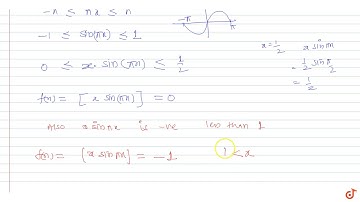 -π ≤ πx ≤ π
-π π
-1 ≤ sin(πx) ≤ 1
x = 1/2 x sin πx
= 1/2 sin π/2
= 1/2
0 ≤ x sin (πx) ≤ 1/2
f(x) = [ x sin(πx) ] = 0
Also x sin πx is -ve less than 1
f(x) = [x sin πx] = -1 1 < x